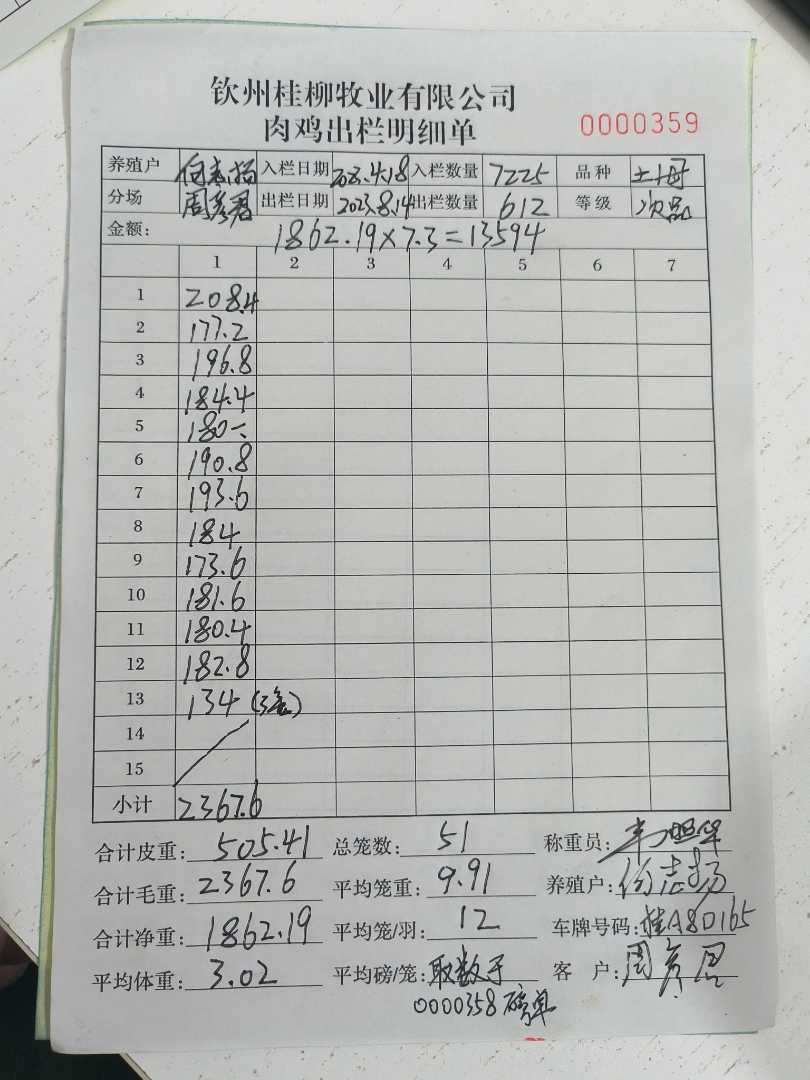 钦州桂柳牧业有限公司
肉鸡出栏明细单
0000359
养殖户 入栏日期 2023.4.18 入栏数量 7225 品种 土母
分场 周彦君 出栏日期 2023.8.14 出栏数量 612 等级 次品
金额: 1862.19×7.3=13594
1 2 3 4 5 6 7
1 208.4
2 177.2
3 196.8
4 184.4
5 180
6 190.8
7 193.6
8 184
9 173.6
10 181.6
11 180.4
12 182.8
13 134 (3笼)
14
15
小计 2367.6
合计皮重: 505.41 总笼数: 51 称重员:
合计毛重: 2367.6 平均笼重: 9.91 养殖户:
合计净重: 1862.19 平均笼/羽: 12 车牌号码: 桂A8D165
平均体重: 3.02 平均磅/笼: 取数于 客 户:
0000358磅单